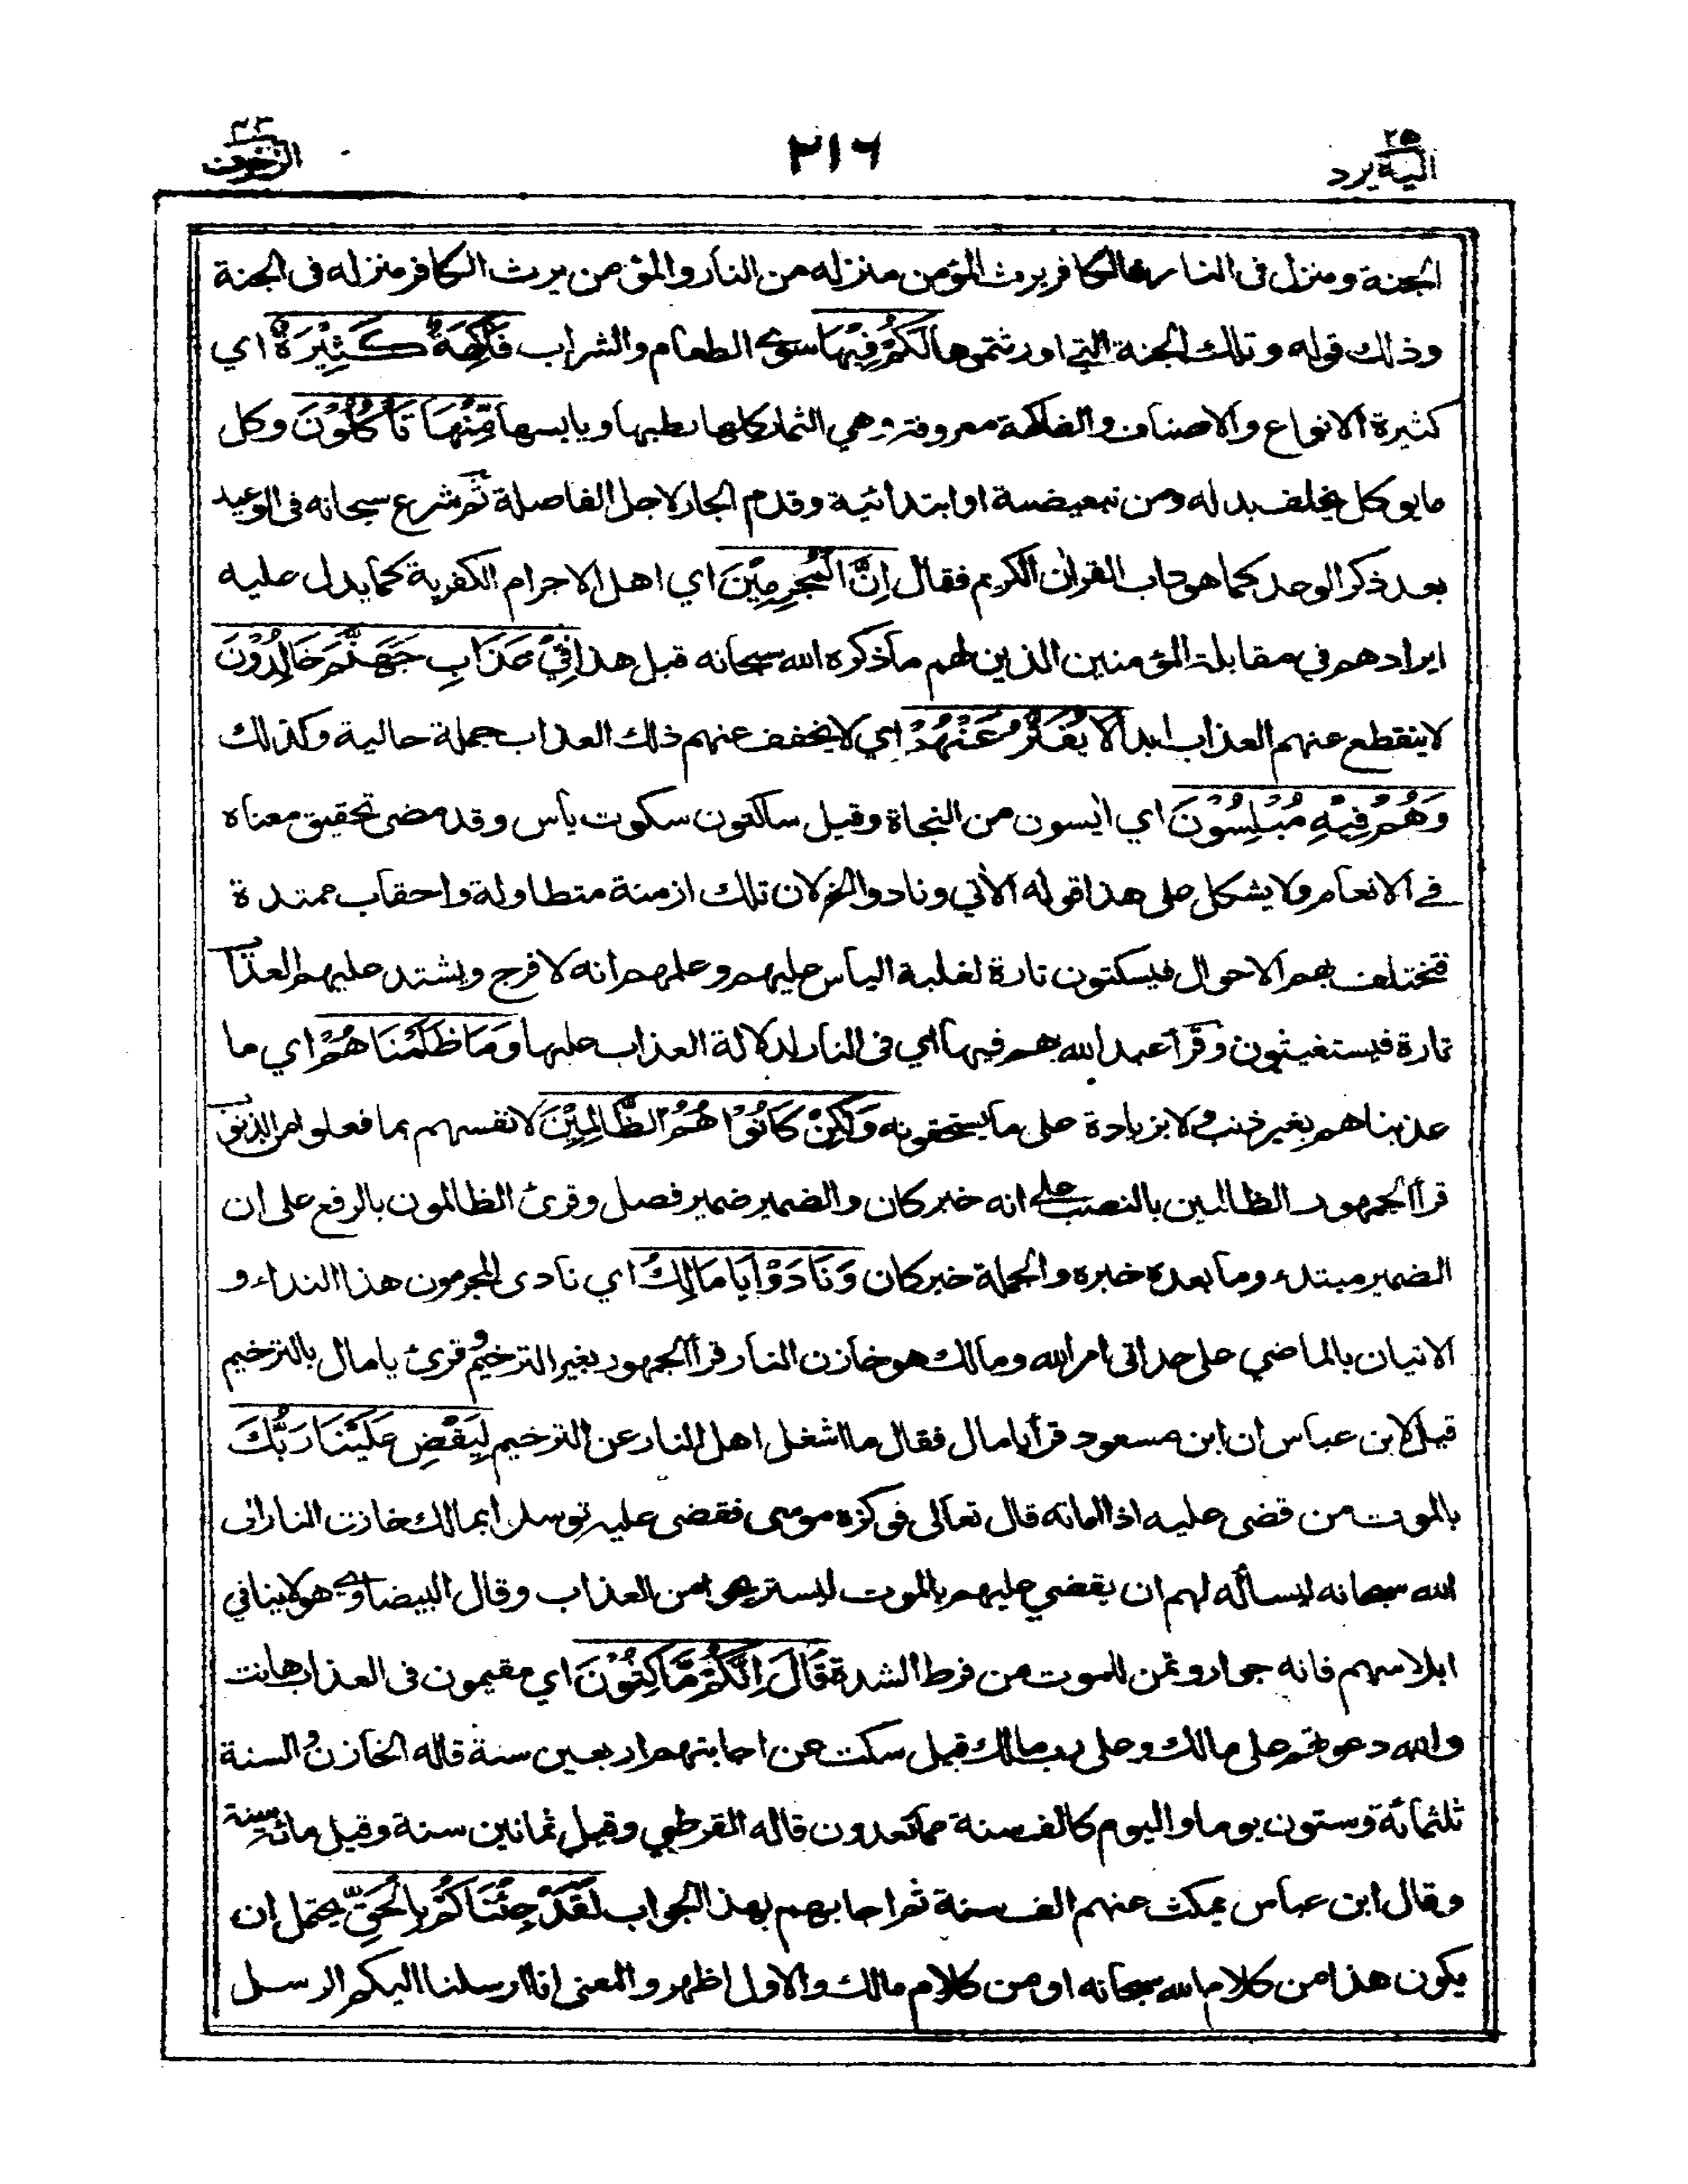 ٢٥
اليه يرد
٢١٦
٤٣
الزخرف
الجنة ومنزل فى النار فالكافر يرث المؤمن منزله من النار والمؤمن يرث الكافر منزله فى الجنة
وذلك قوله وتلك الجنة التي اورثتموها لَكُمْ فِيْهَا سوى الطعام والشراب فَاكِهَةٌ كَثِيْرَةٌ اي
كثيرة الانواع والاصناف والفاكهة معروفة وهي الثمار كلها رطبها ويابسها مِّنْهَا تَأْكُلُوْنَ وكل
مايوكل يخلف بدله ومن تبعيضية او ابتدائية وقدم الجار لاجل الفاصلة ثم شرع سبحانه فى الوعيد
بعد ذكر الوعد كما هو داب القران الكريم فقال اِنَّ الْمُجْرِمِيْنَ اي اهل الاجرام الكفرية كما يدل عليه
ايرادهم في مقابلة المؤمنين الذين لهم ما ذكره الله سبحانه قبل هذا فِيْ عَذَابِ جَهَنَّمَ خَالِدُوْنَ
لا ينقطع عنهم العذاب ابدا لَا يُفَتَّرُ عَنْهُمْ اي لا يخفف عنهم ذلك العذاب جملة حالية وكذلك
وَهُمْ فِيْهِ مُبْلِسُوْنَ اي ايسون من النجاة وقيل ساكتون سكوت يأس وقد مضى تحقيق معناه
في الانعام ولا يشكل على هذا قوله الأتي ونادوا الخ لان تلك ازمنة متطاولة واحقاب ممتدة
فتختلف بهم الاحوال فيسكتون تارة لغلبة الياس عليهم وعلمهم انه لا فرج ويشتد عليهم العذاب
تارة فيستغيثون وقرأ عبد الله وهم فيها اي فى النار لدلالة العذاب عليها وَمَا ظَلَمْنَاهُمْ اي ما
عذبناهم بغير ذنب ولا بزيادة على ما يستحقونه وَلٰكِنْ كَانُوْا هُمُ الظَّالِمِيْنَ لانفسهم بما فعلوا من الذنوب
قرأ الجمهور الظالمين بالنصب على انه خبر كان والضمير ضمير فصل وقرئ الظالمون بالرفع على ان
الضمير مبتدء وما بعده خبره والجملة خبر كان وَنَادَوْا يَا مَالِكُ اي نادى المجرمون هذا النداء و
الاتيان بالماضي على حد اتى امر الله ومالك هو خازن النار قرأ الجمهور بغير الترخيم وقرئ يا مال بالترخيم
قيل لابن عباس ان ابن مسعود قرأ يا مال فقال ما اشغل اهل النار عن الترخيم لِيَقْضِ عَلَيْنَا رَبُّكَ
بالموت من قضى عليه اذا اماته قال تعالى فوكزه موسى فقضى عليه توسلوا بمالك خازن النار الى
الله سبحانه ليسأله لهم ان يقضي عليهم بالموت ليستريحوا من العذاب وقال البيضاوي هو لا ينافي
ابلاسهم فانه جوار وتمن للموت من فرط الشدة قَالَ اِنَّكُمْ مَّاكِثُوْنَ اي مقيمون فى العذاب هانت
والله دعوتهم على مالك وعلى رب مالك قيل سكت عن اجابتهم اربعين سنة قاله الخازن والسنة
ثلثمائة وستون يوما واليوم كالف سنة مما تعدون قاله القرطبي وقيل ثمانين سنة وقيل مائة سنة
وقال ابن عباس يمكث عنهم الف سنة ثم اجابهم بهذا الجواب لَقَدْ جِئْنَاكُمْ بِالْحَقِّ يحتمل ان
يكون هذا من كلام الله سبحانه او من كلام مالك والاول اظهر والمعنى انا ارسلنا اليكم الرسل